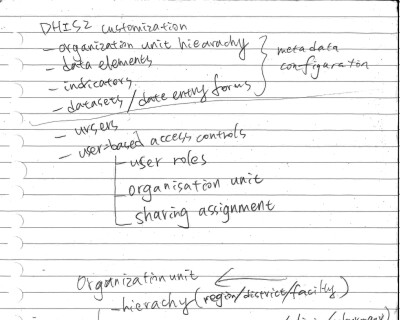 DHIS2 customization
- organization unit hiearachy
- data elements
- indicators
- datasets / date entry forms
metadata
configuraton
- ursers
- user-based access controls
- user roles
- organisation unit
- sharing assignment
Organization unit
- hierachy (region/district/facility)